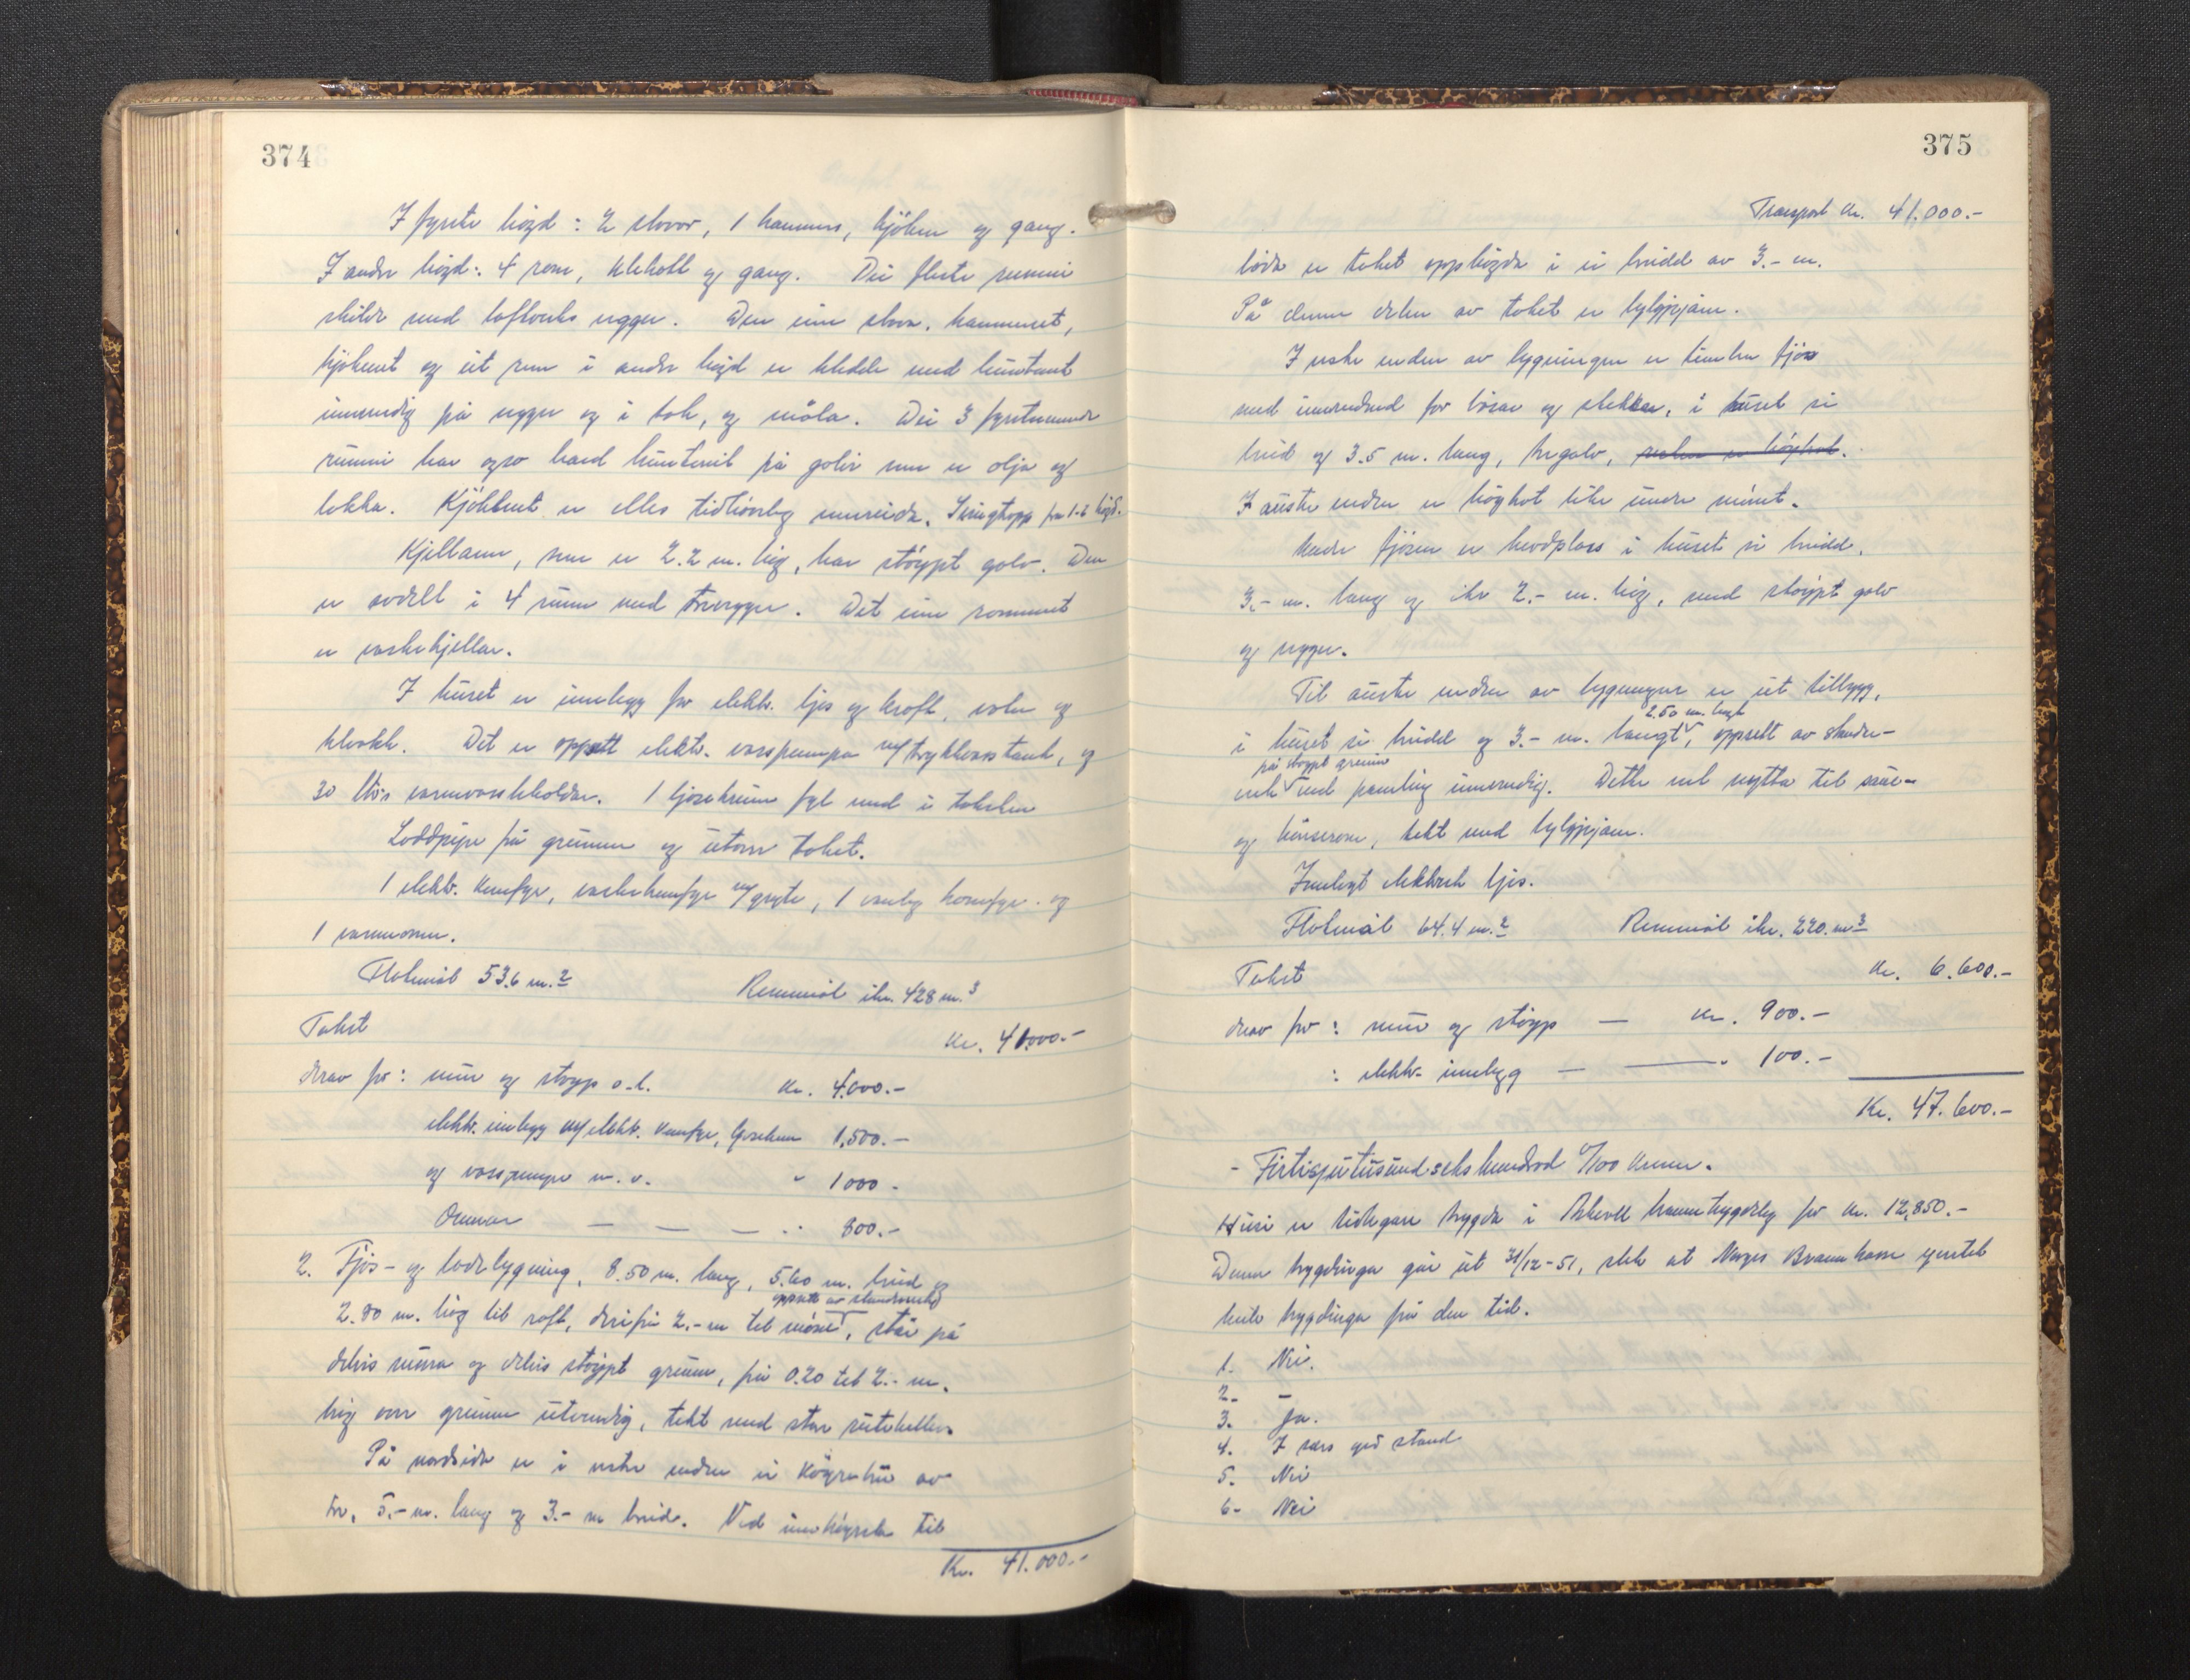 374
I fyrste högd: 2 stovor, 1 kammers, kjöken og gang.
I andre högd: 4 rom, klekott og gang. Dei fleste rummi
skilde med tofleris vegger. Den eine stova, kammerset,
kjökenet og eit rum i andre högd er kledde med
innvendig på vegger og i tak, og måla. Dei 3 fyrstnemnde
rummi har ogso hard på golvi som er olja og
lakka. Kjökkenet er elles tidhöveleg innreida. trapp fra 1-2 högd.
Kjellaren, som er 2.2 m. hög, har stöypt golv. Den
er avdelt i 4 rum med trevegger. Det eine rommet
er vaskekjellar.
I huset er innlegg for elektr. ljos og kraft, vatn og
kloakk. Det er oppsett elektr. vasspumpa m/trykkvasstank, og
30 liters varmvassbehaldar. 1 ljosekruna fyl med i taksten
Loddpipe frå grunnen og utover taket.
1 elektr. komfyr, vaskekomfyr m/gryte, 1 vanleg komfyr og
1 varmeomn.
Flatemål 53.6 m.2 Rommål ikr. 428 m.3
Takst Kr. 41000.-
derav for: mur og stöyp o.l. Kr. 4.000.-
elektr. innlegg m/elektr. komfyr, ljosekrun 1.500.-
og vasspumpe m. v. " 1000.-
Omnar — — — " 800.-
2. Fjös- og lödebygning, 8.50 m. lang, 5.60 m. breid og
oppsett av standarverk
2.80 m. hög til raft, derifrå 2.- m til mönet, står på
delvis mura og delvis stöypt grunn, frå 0.20 til 2.- m.
hög over grunnen utvendig, tekt med stor rutehellar
På nordsida er i vestre enden ei köyrebru av
tre, 5.- m. lang og 3.- m breid. Ved innköyrsla til
Kr. 41.000.-
375
Transport Kr. 41.000.-
löda er taket opphögda i ei breidd av 3.- m.
På denne delen av taket er bylgjejarn.
I vestre enden av bygningen er timbra fjös
med innreidnad for båsar og stekkar, i huset si
breid og 3.5 m. lang, tregolv,
I austre enden er höykot like under mönet.
Under fjösen er havdplass i huset si breidd,
3.- m. lang og ikr 2.- m. hög, med stöypt golv
og vegger.
Til austre enden av bygningen er eit tilbygg,
2.50 m. högt
i huset si breidd og 3.- m. langt, oppsett av stender-
på stöypt grunn
verk med paneling innvendig. Dette vert nytta til saue-
og hönserom, tekt med bylgjejarn.
Innlagt elektrisk ljos.
Flatemål 64.4 m.2 Rommål ikr. 220. m3
Takst Kr. 6.600.-
derav for: mur og stöyp — Kr. 900.-
: elektr. innlegg — — " 100.-
Kr. 47.600.-
- Förtisjutusundsekshundrad 0/100 kroner.
Husi er tidlegare trygda i Askvoll branntrygdelag for kr. 12.850.-
Denne trygdinga går ut 31/12-51, slik at Noregs Brannkasse yvertek
heile trygdinga frå den tid.
1. Nei.
2. -
3. Ja.
4. I sers god stand
5. Nei
6. Nei